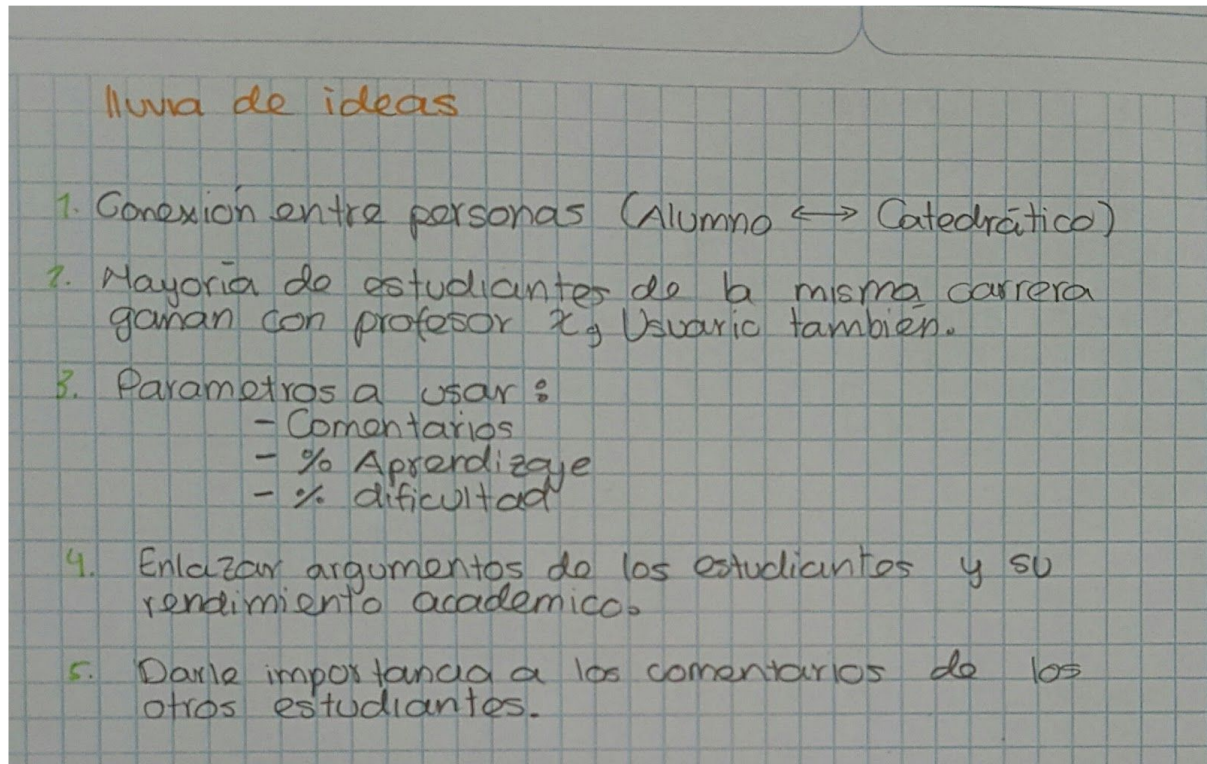 lluvia de ideas
1. Conexión entre personas (Alumno ↔ Catedrático)
2. Mayoría de estudiantes de la misma carrera
ganan con profesor x, Usuario también.
3. Parametros a usar:
- Comentarios
- % Aprendizaje
- % dificultad
4. Enlazar argumentos de los estudiantes y su
rendimiento academico.
5. Darle importancia a los comentarios de los
otros estudiantes.